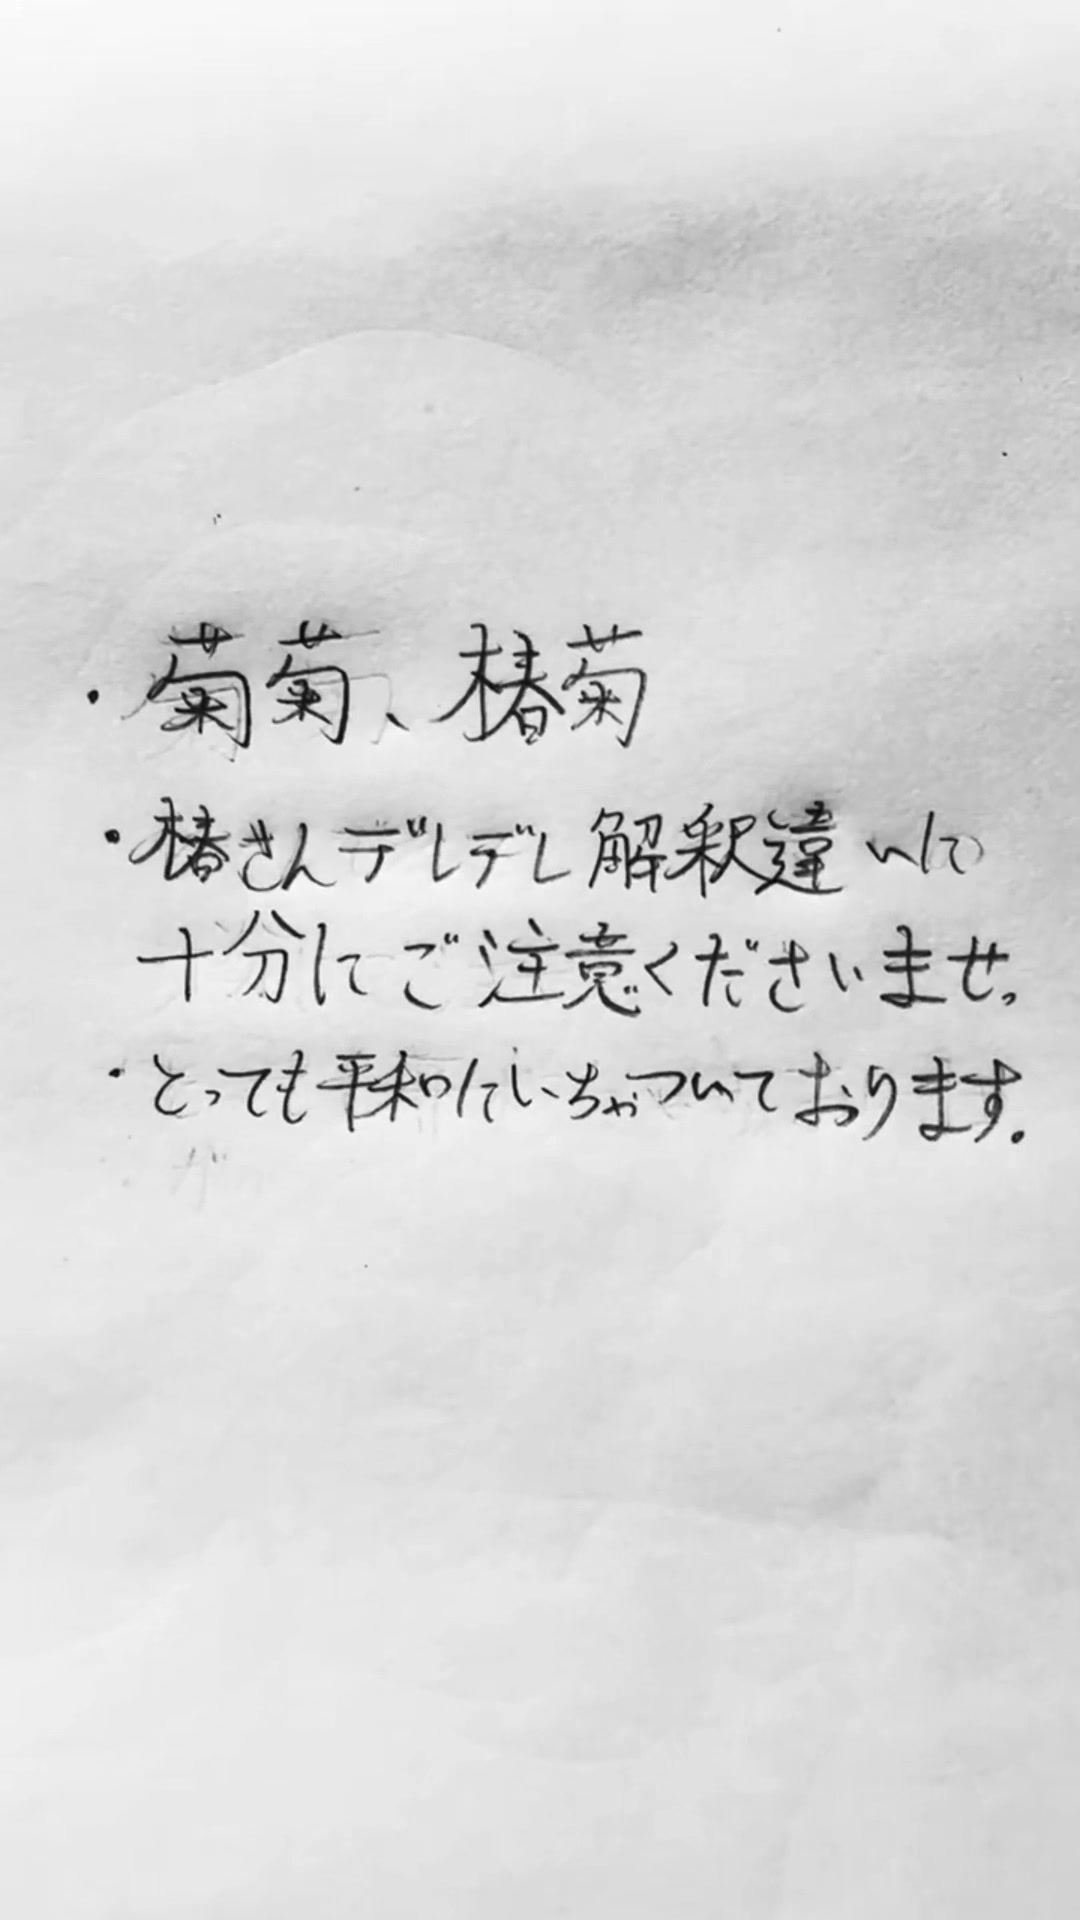 ・菊菊、椿菊
・椿さんデレデレ解釈違いに
十分にご注意くださいませ。
・とっても平和にいちゃついております。